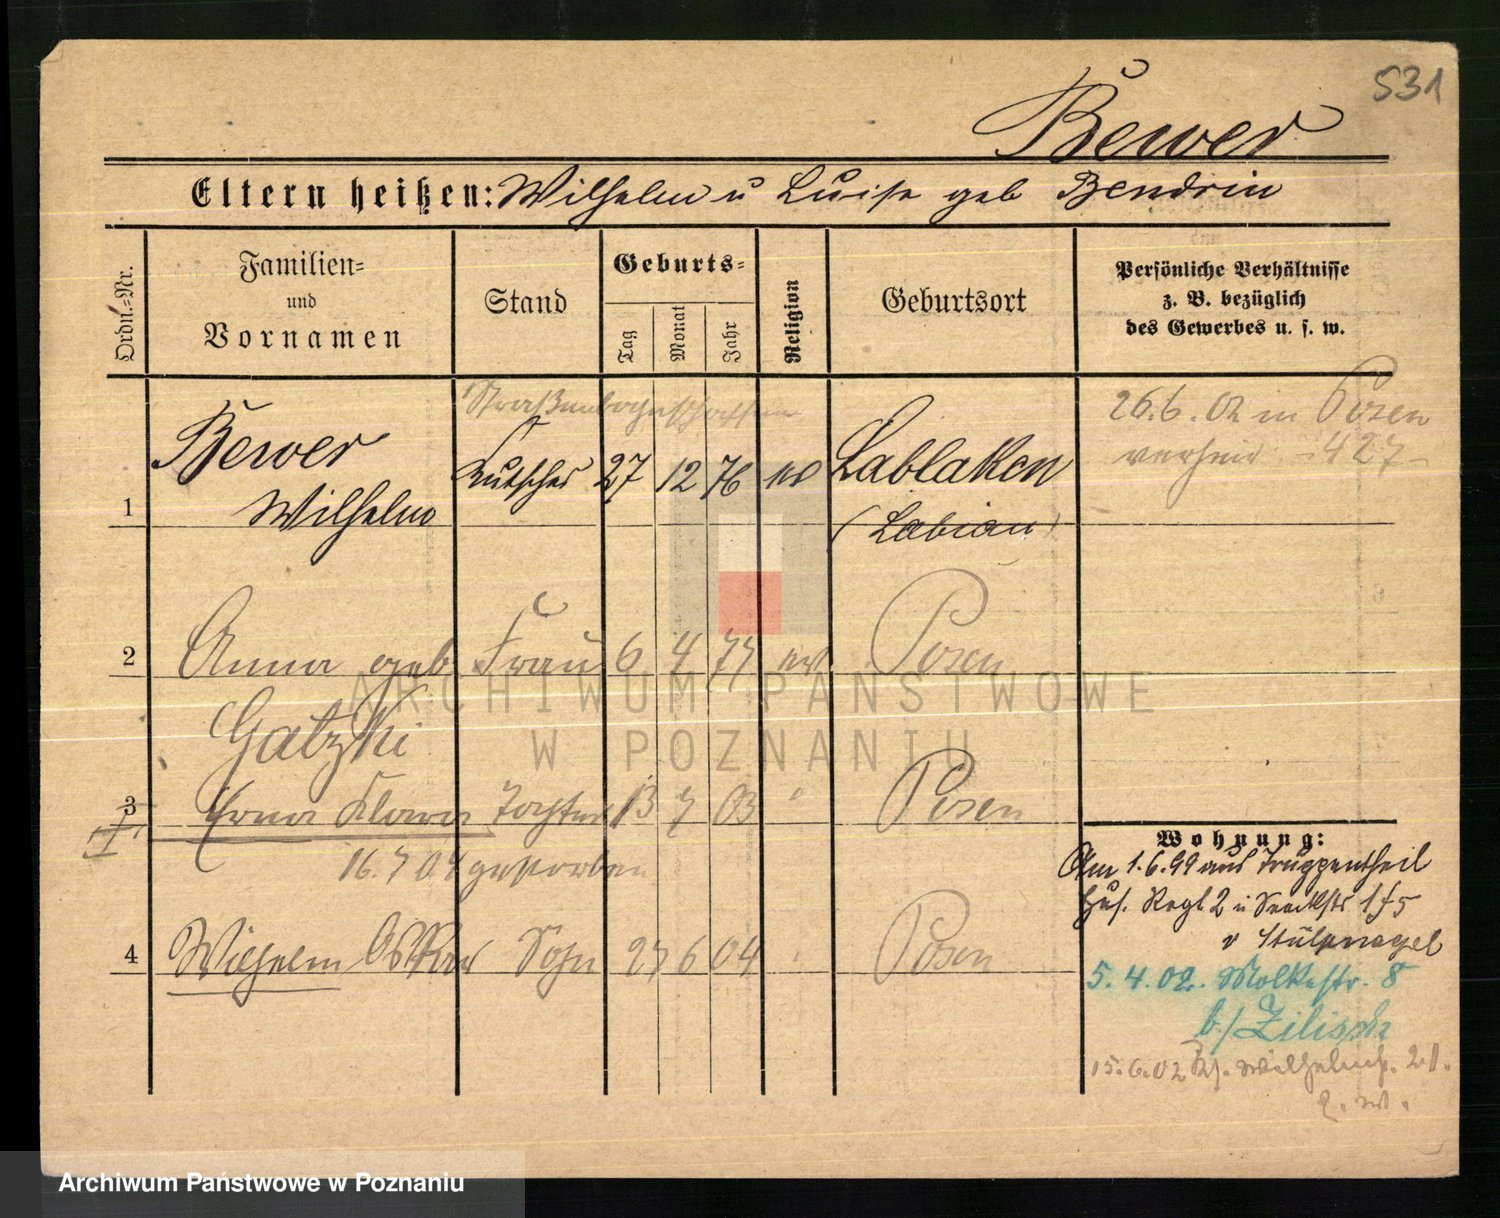 531
Bewer
Eltern heißen: Wilhelm u Luise geb Bendrin
Ordn.=Nr.
Familien=
und
Vornamen
Stand
Geburts=
Tag
Monat
Jahr
Religion
Geburtsort
Persönliche Verhältnisse
z. B. bezüglich
des Gewerbes u. s. w.
Straßenbahnschaffner
26.6.02 in Posen
verheir. -427-
1
Bewer
Wilhelm
Kutscher
27
12
76
ev
Lablaken
(Labiau)
2
Anna geb
Gatzki
Frau
6
4
77
ev
Posen
3
Erna Klara
Tochter
13
7
03
"
Posen
16.7 04 gestorben
4
Wilhelm Oskar
Sohn
27
6
04
Posen
Wohnung:
Am 1.6.99 aus Truppentheil
Hus. Regt 2 175
v Stülpnagel
5.4.02. Molkestr. 8
b/
15.6.02
ARCHIWUM PAŃSTWOWE
W POZNANIU
Archiwum Państwowe w Poznaniu